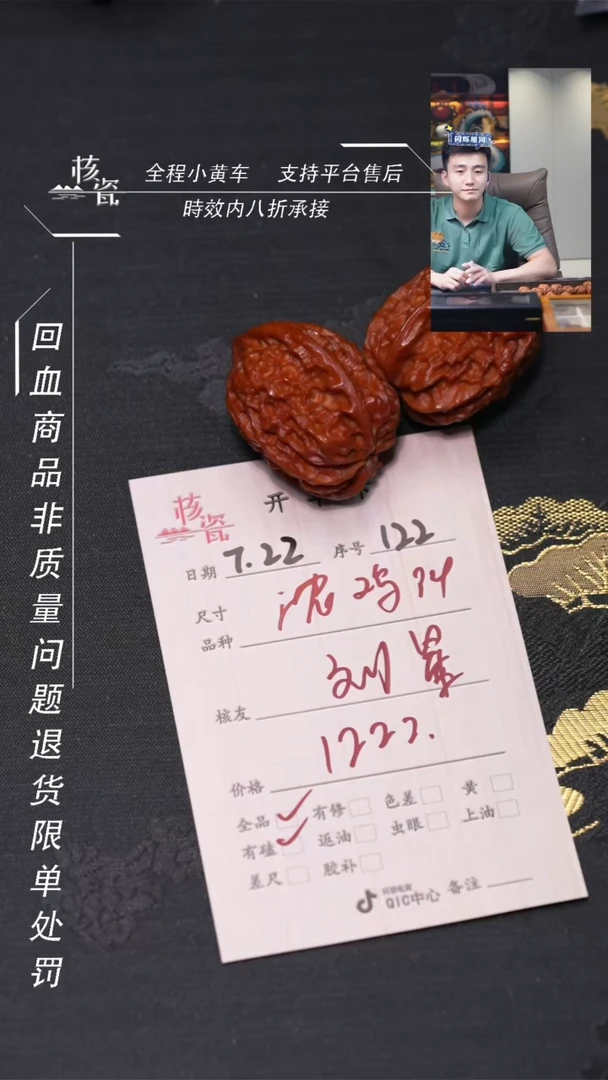 闪烁星河
核瓷
全程小黄车 支持平台售后
時效内八折承接
回血商品非质量问题退货限单处罚
核瓷
开
日期 7.22 序号 122
尺寸
品种
刘
核友
1222.
价格
全品 有修 色差 黄
有磕 返油 虫眼 上油
差尺 胶补
抖音电商
QIC中心 备注